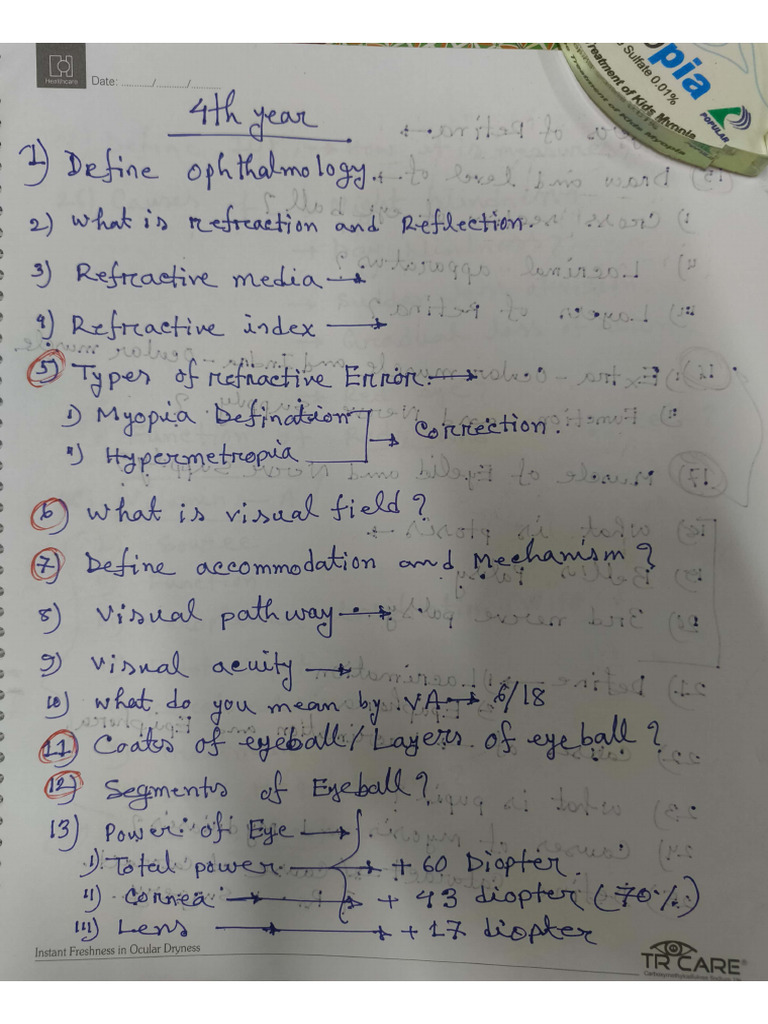 Healthcare
Date: ........../........../..........
opia
Sulfate 0.01%
Treatment of Kids Myopia
POPULAR
4th year
1) Define ophthalmology.
2) What is refraction and Reflection.
3) Refractive media →
4) Refractive index →
5) Types of refractive Error. →
i) Myopia Defination
→ Correction.
ii) Hypermetropia
6) What is visual field?
7) Define accommodation and Mechanism?
8) Visual pathway →
9) Visual acuity →
10) What do you mean by VA → 6/18
11) Coats of eyeball/Layers of eyeball?
12) Segments of Eyeball?
13) Power of Eye →
i) Total power → + 60 Diopter.
ii) Cornea → + 43 diopter (70%)
iii) Lens → + 17 diopter
Instant Freshness in Ocular Dryness
TR CARE